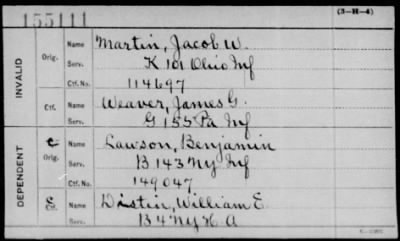 155111
(3-H-4)
INVALID
Orig.
Name Martin, Jacob W.
Serv. K 101 Ohio Inf
Ctf. No. 114697
Ctf.
Name Weaver, James G.
Serv. G 155 Pa Inf
DEPENDENT
C
Orig.
Name Lawson, Benjamin
Serv. B 143 NY Inf
Ctf. No. 149047
C
Ctf.
Name Distin, William E.
Serv. B 4 NY H A